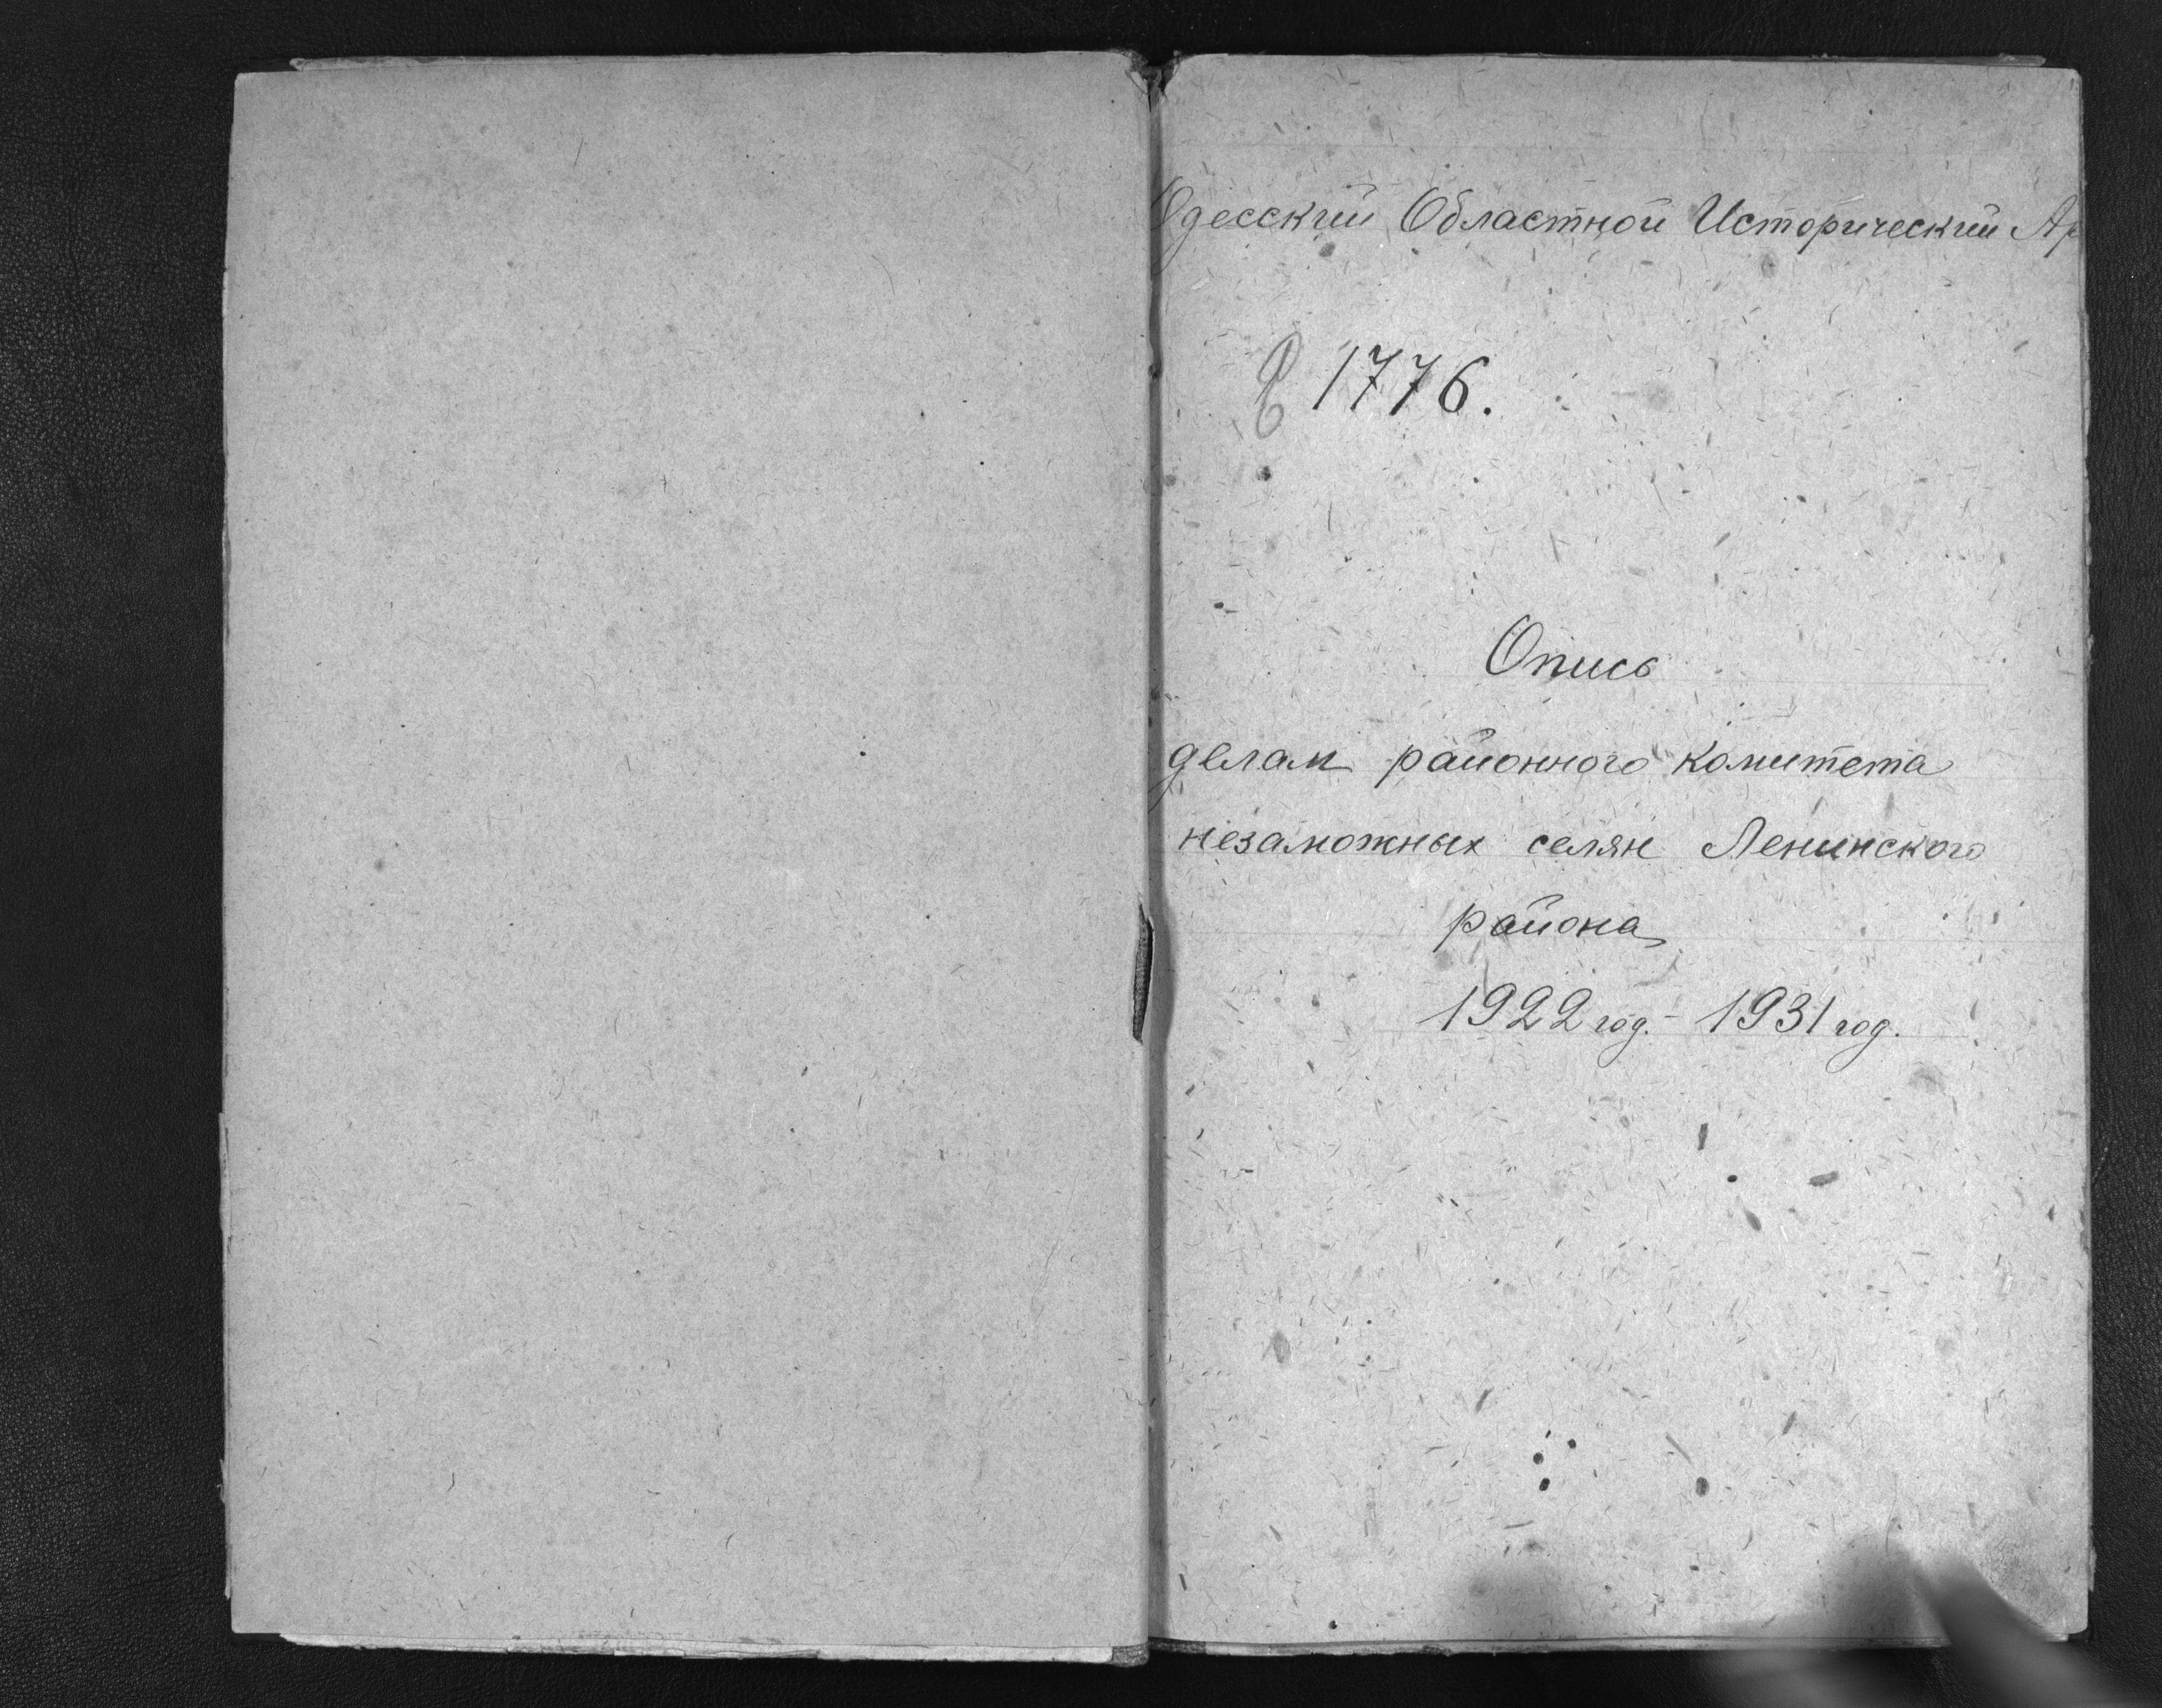 Одесский Областной Исторический Ар
1776.
Опись
делам районного комитета
незаможных селян Ленинского
района
1922 год. - 1931 год.